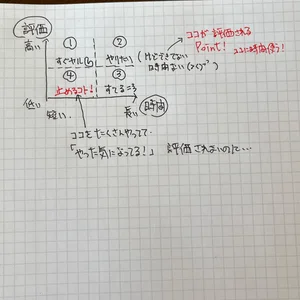 評価
高い
低い
① すぐヤル!
② やりたい(けどできてない 時間ない(>_<))
ココが評価される
Point!
ココに時間使う!
④ 止めるコト!
③ すてる
短い
長い
時間
ココをたくさんやってて
「やった気になってる!」 評価されないのに…